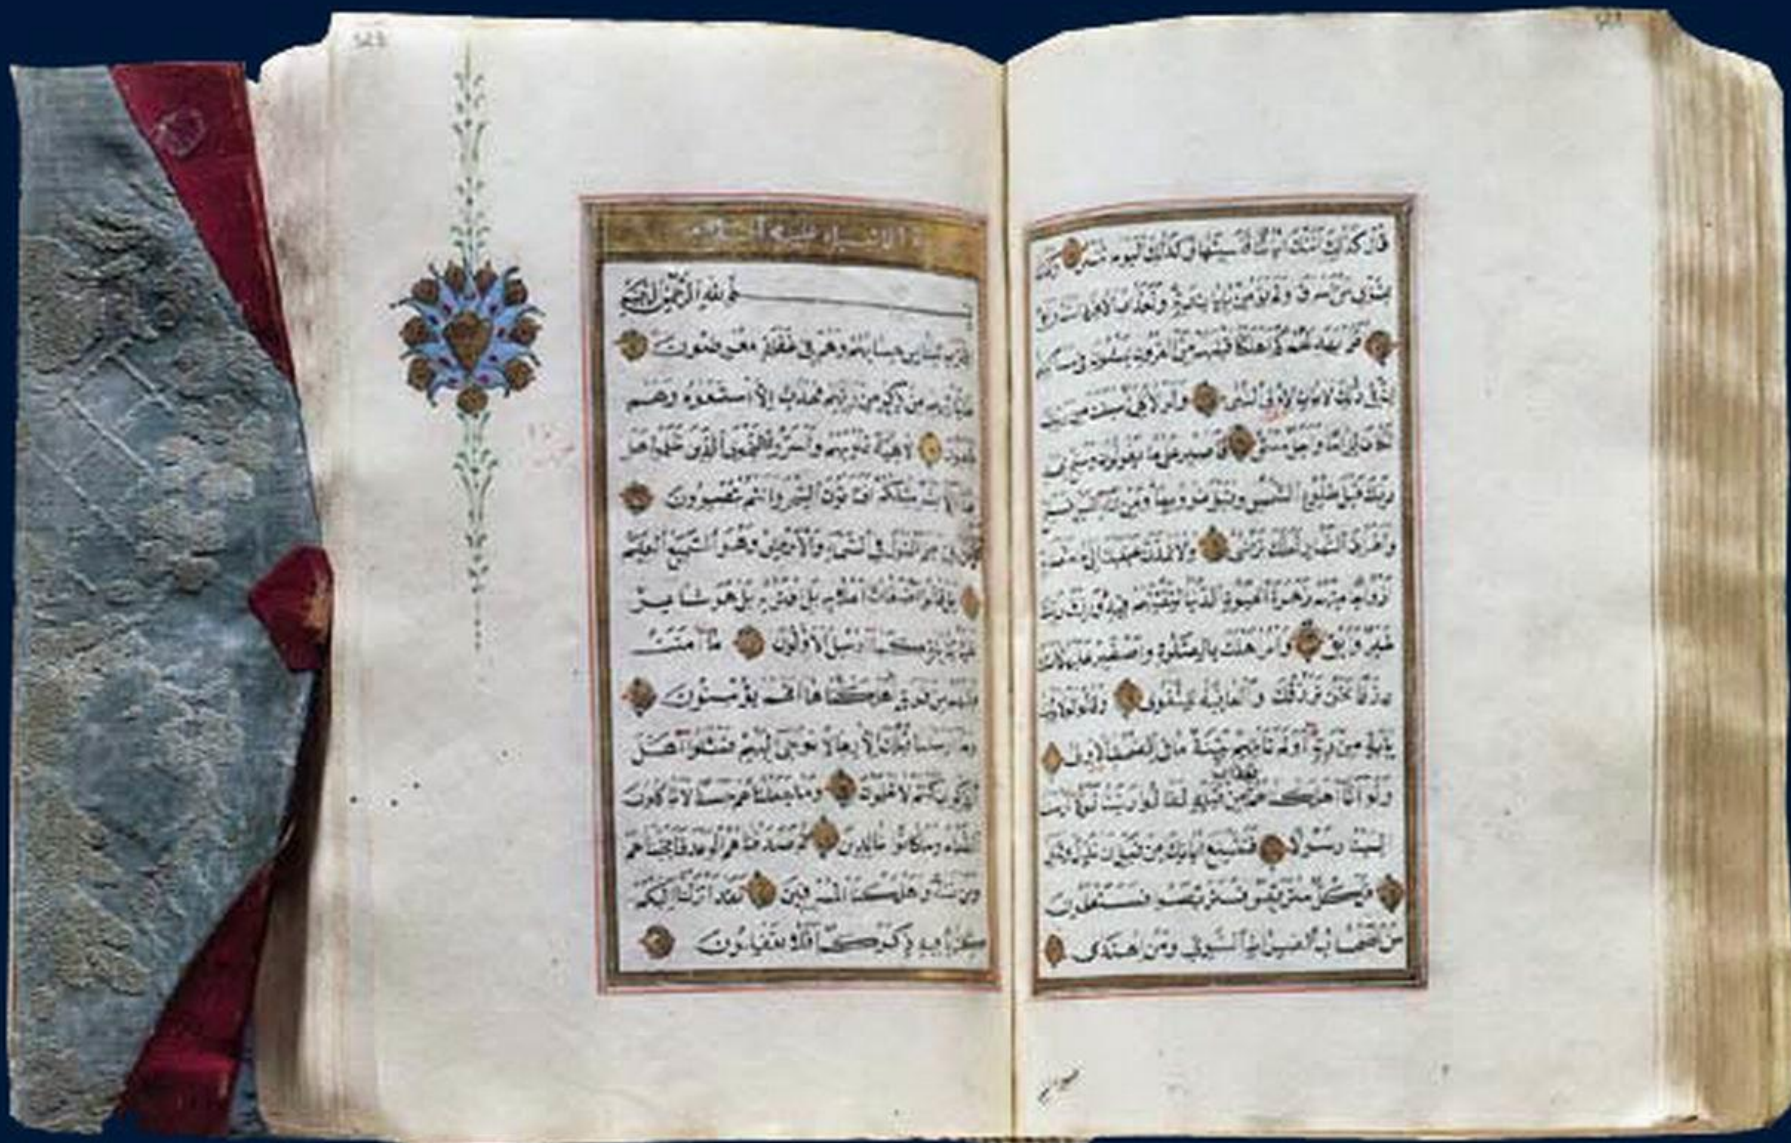 قال كذلك أتتك آياتنا فنسيتها وكذلك اليوم تنسى وكذلك
نجزي من أسرف ولم يؤمن بآيات ربه ولعذاب الآخرة أشد وأبقى
أفلم يهد لهم كم أهلكنا قبلهم من القرون يمشون في مساكنهم
إن في ذلك لآيات لأولي النهى ولولا كلمة سبقت من ربك
لكان لزاما وأجل مسمى فاصبر على ما يقولون وسبح بحمد
ربك قبل طلوع الشمس وقبل غروبها ومن آناء الليل فسبح
وأطراف النهار لعلك ترضى ولا تمدن عينيك إلى ما متعنا به
أزواجا منهم زهرة الحيوة الدنيا لنفتنهم فيه ورزق ربك
خير وأبقى وأمر أهلك بالصلوة واصطبر عليها لا نسئلك
رزقا نحن نرزقك والعاقبة للتقوى وقالوا لولا يأتينا
بآية من ربه أولم تأتهم بينة ما في الصحف الأولى
بعذاب
ولو أنا أهلكناهم من قبله لقالوا ربنا لولا أرسلت
إلينا رسولا فنتبع آياتك من قبل أن نذل ونخزى
قل كل متربص فتربصوا فستعلمون
من أصحاب الصراط السوي ومن اهتدى
الأنبياء عليهم السلام
بسم الله الرحمن الرحيم
اقترب للناس حسابهم وهم في غفلة معرضون
ما يأتيهم من ذكر من ربهم محدث إلا استمعوه وهم
يلعبون لاهية قلوبهم وأسروا النجوى الذين ظلموا هل
هذا إلا بشر مثلكم أفتأتون السحر وأنتم تبصرون
قال ربي يعلم القول في السماء والأرض وهو السميع العليم
بل قالوا أضغاث أحلام بل افتريه بل هو شاعر
فليأتنا بآية كما أرسل الأولون ما آمنت
قبلهم من قرية أهلكناها أفهم يؤمنون
وما أرسلنا قبلك إلا رجالا نوحي إليهم فسئلوا أهل
الذكر إن كنتم لا تعلمون وما جعلناهم جسدا لا يأكلون
الطعام وما كانوا خالدين ثم صدقناهم الوعد فأنجيناهم
ومن نشاء وأهلكنا المسرفين لقد أنزلنا إليكم
كتابا فيه ذكركم أفلا تعقلون